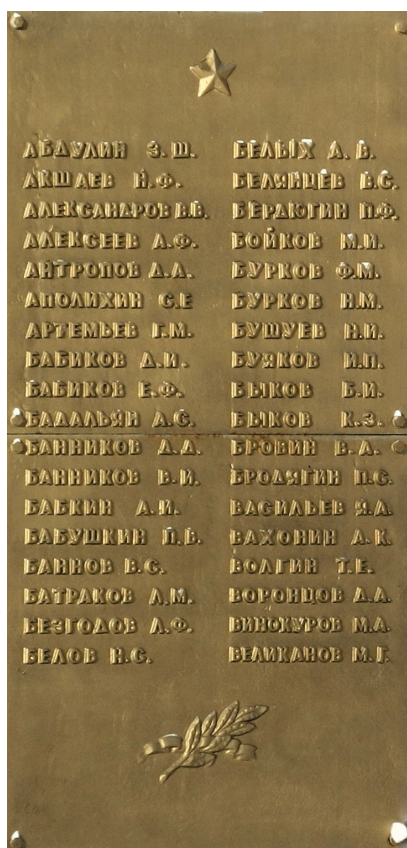 АБДУЛИН З.Ш.
АКШАЕВ Н.Ф.
АЛЕКСАНДРОВ В.В.
АЛЕКСЕЕВ А.Ф.
АНТРОПОВ Д.А.
АПОЛИХИН С.Е
АРТЕМЬЕВ Г.М.
БАБИКОВ Д.И.
БАБИКОВ Е.Ф.
БАДАЛЬЯН А.С.
БАННИКОВ Д.Д.
БАННИКОВ В.И.
БАБКИН А.И.
БАБУШКИН П.В.
БАННОВ В.С.
БАТРАКОВ Л.М.
БЕЗГОДОВ Л.Ф.
БЕЛОВ Н.С.
БЕЛЫХ А.В.
БЕЛЯНЦЕВ В.С.
БЕРДЮГИН П.Ф.
БОЙКОВ М.И.
БУРКОВ Ф.М.
БУРКОВ Н.М.
БУШУЕВ Н.И.
БУЯКОВ И.П.
БЫКОВ Б.И.
БЫКОВ К.З.
БРОВИН В.А.
БРОДЯГИН П.С.
ВАСИЛЬЕВ Я.А.
ВАХОНИН А.К.
ВОЛГИН Т.Е.
ВОРОНЦОВ Д.А.
ВИНОКУРОВ М.А.
ВЕЛИКАНОВ М.Г.